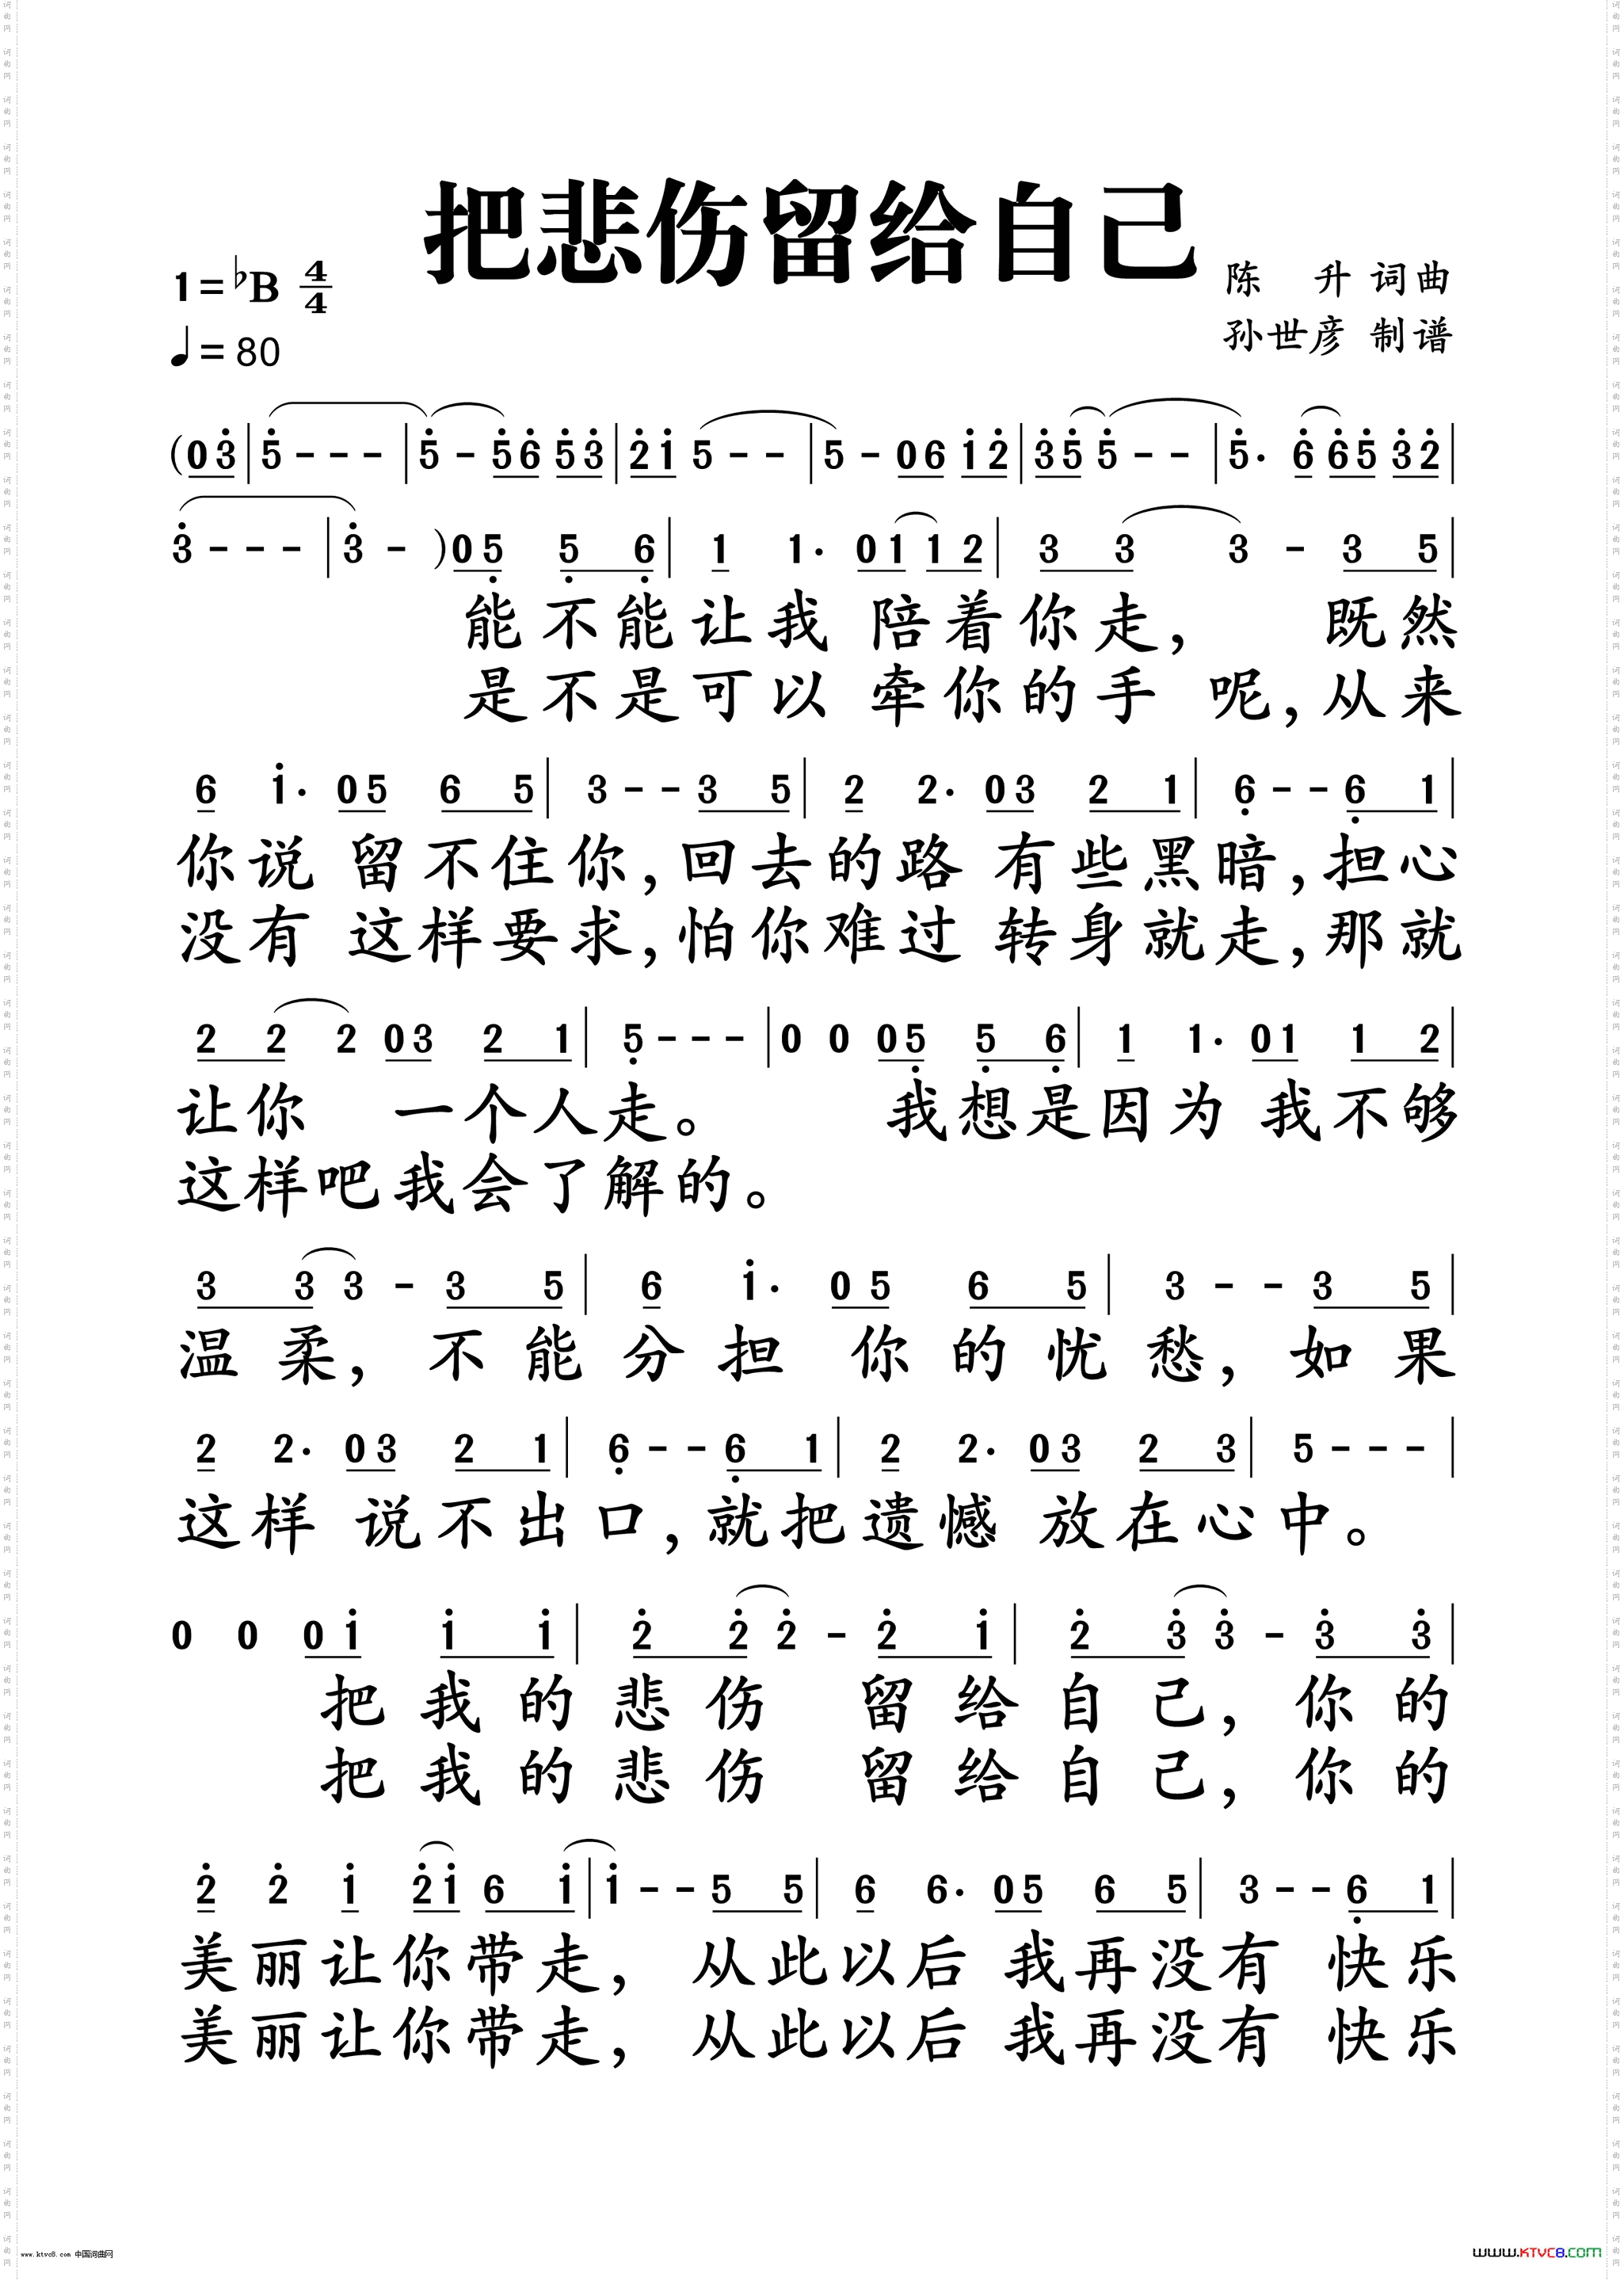 把悲伤留给自己
1=♭B 4/4
陈 升 词曲
♩=80
孙世彦 制谱
(0 3̇ | 5̇ - - - | 5̇ - 5̇ 6̇ 5̇ 3̇ | 2̇ 1̇ 5 - - | 5 - 0 6 1̇ 2̇ | 3̇ 5̇ 5̇ - - | 5̇. 6̇ 6̇ 5̇ 3̇ 2̇ |
3̇ - - - | 3̇ - ) 0 5̣ 5̣ 6̣ | 1 1. 0 1 1 2 | 3 3 3 - 3 5 |
能不能让我 陪着你走, 既然
是不是可以 牵你的手 呢,从来
6 1̇. 0 5 6 5 | 3 - - 3 5 | 2 2. 0 3 2 1 | 6̣ - - 6̣ 1 |
你说 留不住你,回去的路 有些黑暗,担心
没有 这样要求,怕你难过 转身就走,那就
2 2 2 0 3 2 1 | 5̣ - - - | 0 0 0 5̣ 5̣ 6̣ | 1 1. 0 1 1 2 |
让你 一个人走。 我想是因为 我不够
这样吧我会了解的。
3 3 3 - 3 5 | 6 1̇. 0 5 6 5 | 3 - - 3 5 |
温柔, 不能分担 你的忧愁, 如果
2 2. 0 3 2 1 | 6̣ - - 6̣ 1 | 2 2. 0 3 2 3 | 5 - - - |
这样 说不出口,就把遗憾 放在心中。
0 0 0 1̇ 1̇ 1̇ | 2̇ 2̇ 2̇ - 2̇ 1̇ | 2̇ 3̇ 3̇ - 3̇ 3̇ |
把我的悲伤 留给自己, 你的
把我的悲伤 留给自己, 你的
2̇ 2̇ 1̇ 2̇ 1̇ 6 1̇ | 1̇ - - 5 5 | 6 6. 0 5 6 5 | 3 - - 6̣ 1 |
美丽让你带走, 从此以后 我再没有 快乐
美丽让你带走, 从此以后 我再没有 快乐
www.ktvc8.com 中国词曲网
WWW.KTVC8.COM